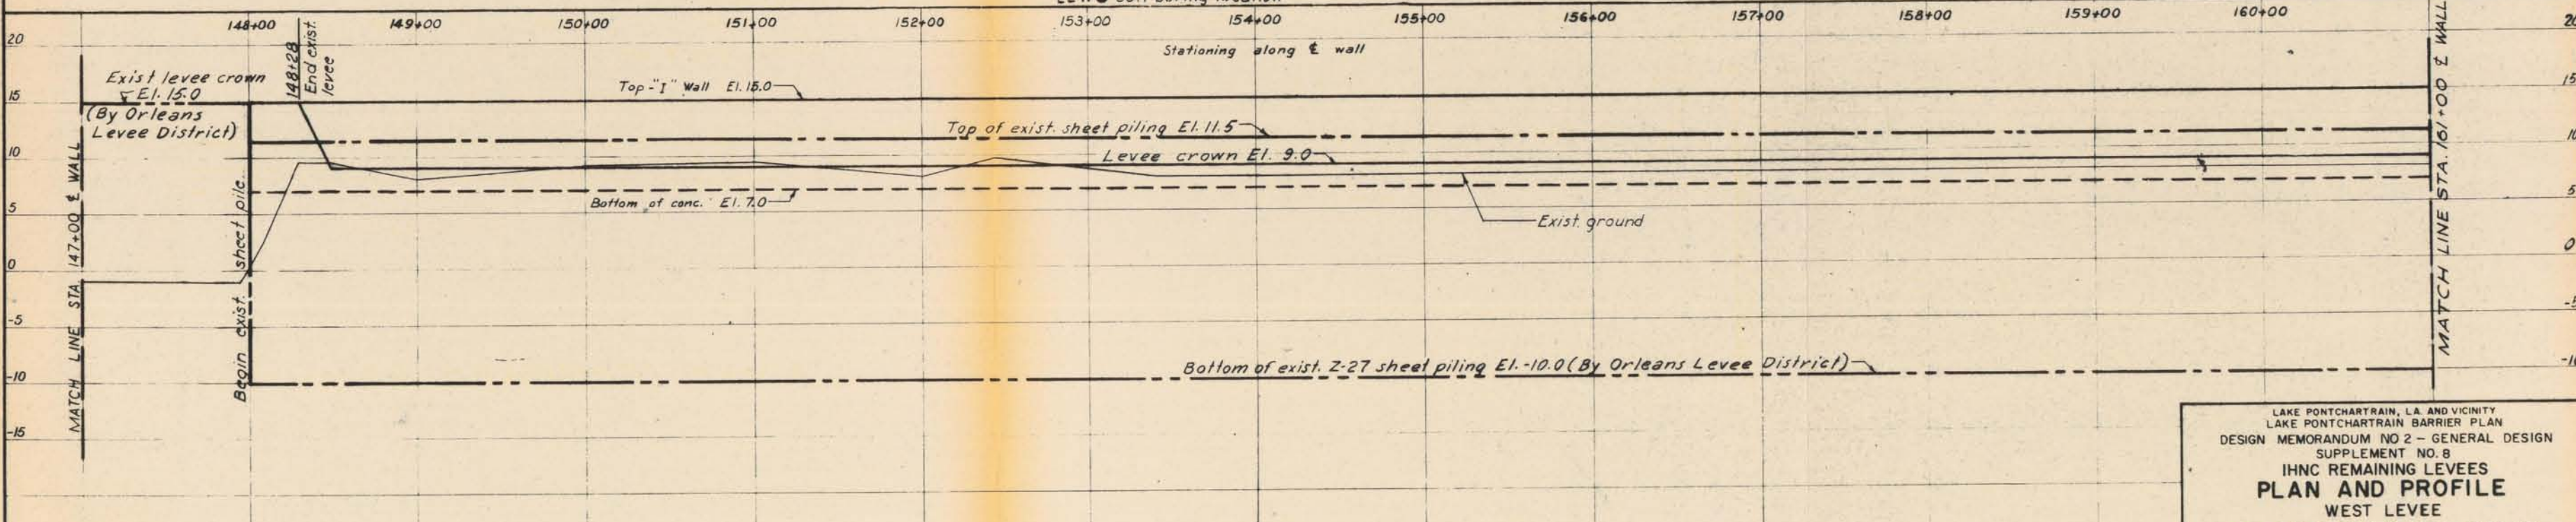 148+00 149+00 150+00 151+00 152+00 153+00 154+00 155+00 156+00 157+00 158+00 159+00 160+00
Stationing along ℄ wall
20
15
10
5
0
-5
-10
-15
MATCH LINE STA. 147+00 ℄ WALL
Exist levee crown
El. 15.0
(By Orleans
Levee District)
148+28
End exist.
levee
Begin exist. sheet pile
Top-"I" Wall El. 15.0
Top of exist. sheet piling El. 11.5
Levee crown El. 9.0
Bottom of conc. El. 7.0
Exist. ground
Bottom of exist. Z-27 sheet piling El. -10.0 (By Orleans Levee District)
MATCH LINE STA. 161+00 ℄ WALL
15
5
0
LAKE PONTCHARTRAIN, LA. AND VICINITY
LAKE PONTCHARTRAIN BARRIER PLAN
DESIGN MEMORANDUM NO 2 – GENERAL DESIGN
SUPPLEMENT NO. 8
IHNC REMAINING LEVEES
PLAN AND PROFILE
WEST LEVEE